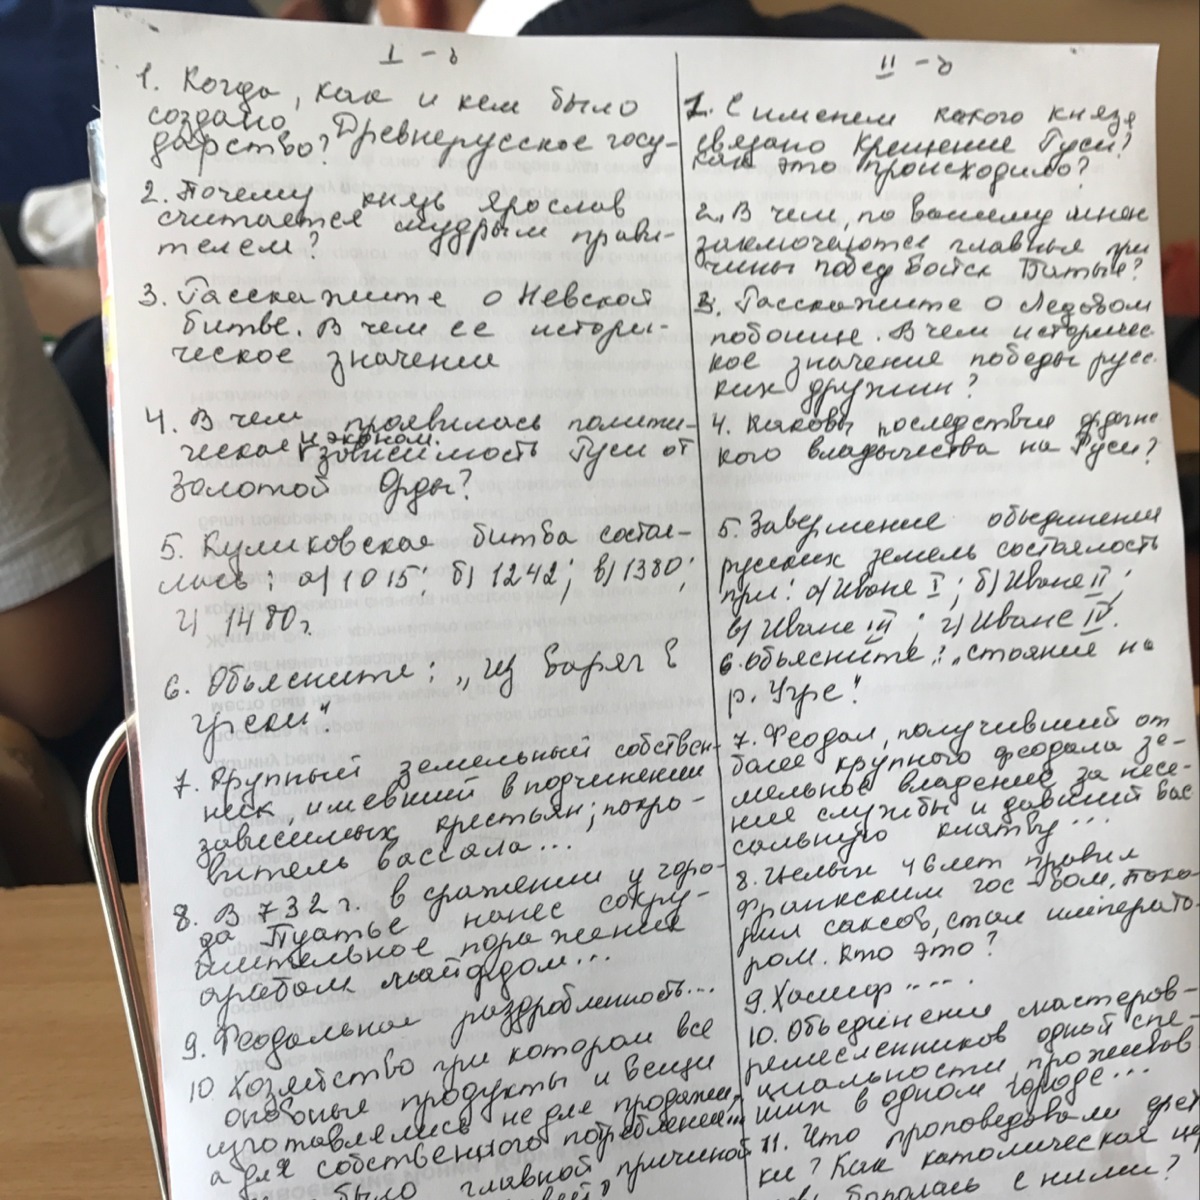 I - в
1. Когда, как и кем было
создано Древнерусское госу-
дарство?
2. Почему князь Ярослав
считается мудрым прави-
телем?
3. Расскажите о Невской
битве. В чем ее истори-
ческое значение
4. В чем проявилась полити-
ческая и эконом. зависимость Руси от
Золотой Орды?
5. Куликовская битва состоя-
лась: а) 1015; б) 1242; в) 1380;
г) 1480г.
6. Объясните: „из варяг в
греки".
7. Крупный земельный собствен-
ник, имевший в подчинении
зависимых крестьян; покро-
витель вассала...
8. В 732 г. в сражении у горо-
да Пуатье нанес сокру-
шительное поражение
арабам майордом...
9. Феодальная раздробленность...
10 Хозяйство при котором все
продукты и вещи
изготавлялись не для продажи,
а для собственного потребления...
было главной причиной
II - в
1. С именем какого князя
связано Крещение Руси?
Как это происходило?
2. В чем, по вашему мнен
заключаются главные при
чины побед войск Батыя?
3. Расскажите о Ледовом
побоище. В чем историчес-
кое значение победы русс-
ких дружин?
4. Каковы последствия ордынс
кого владычества на Руси?
5. Завершение объединения
русских земель состоялось
при: а) Иване I; б) Иване II;
в) Иване III; г) Иване IV.
6. Объясните: „стояние на
р. Угре".
7. Феодал, получивший от
более крупного феодала зе-
мельное владение за несе-
ние службы и давший вас
сальную клятву...
8. Целых 46 лет правил
Франкским гос-вом, поко-
рил саксов, стал императо-
ром. Кто это?
9. Халиф.....
10. Объединение мастеров-
ремесленников одной спе-
циальности проживав
ших в одном городе...
11. Что проповедовали ерет
ки? Как католическая це
боролась с ними?